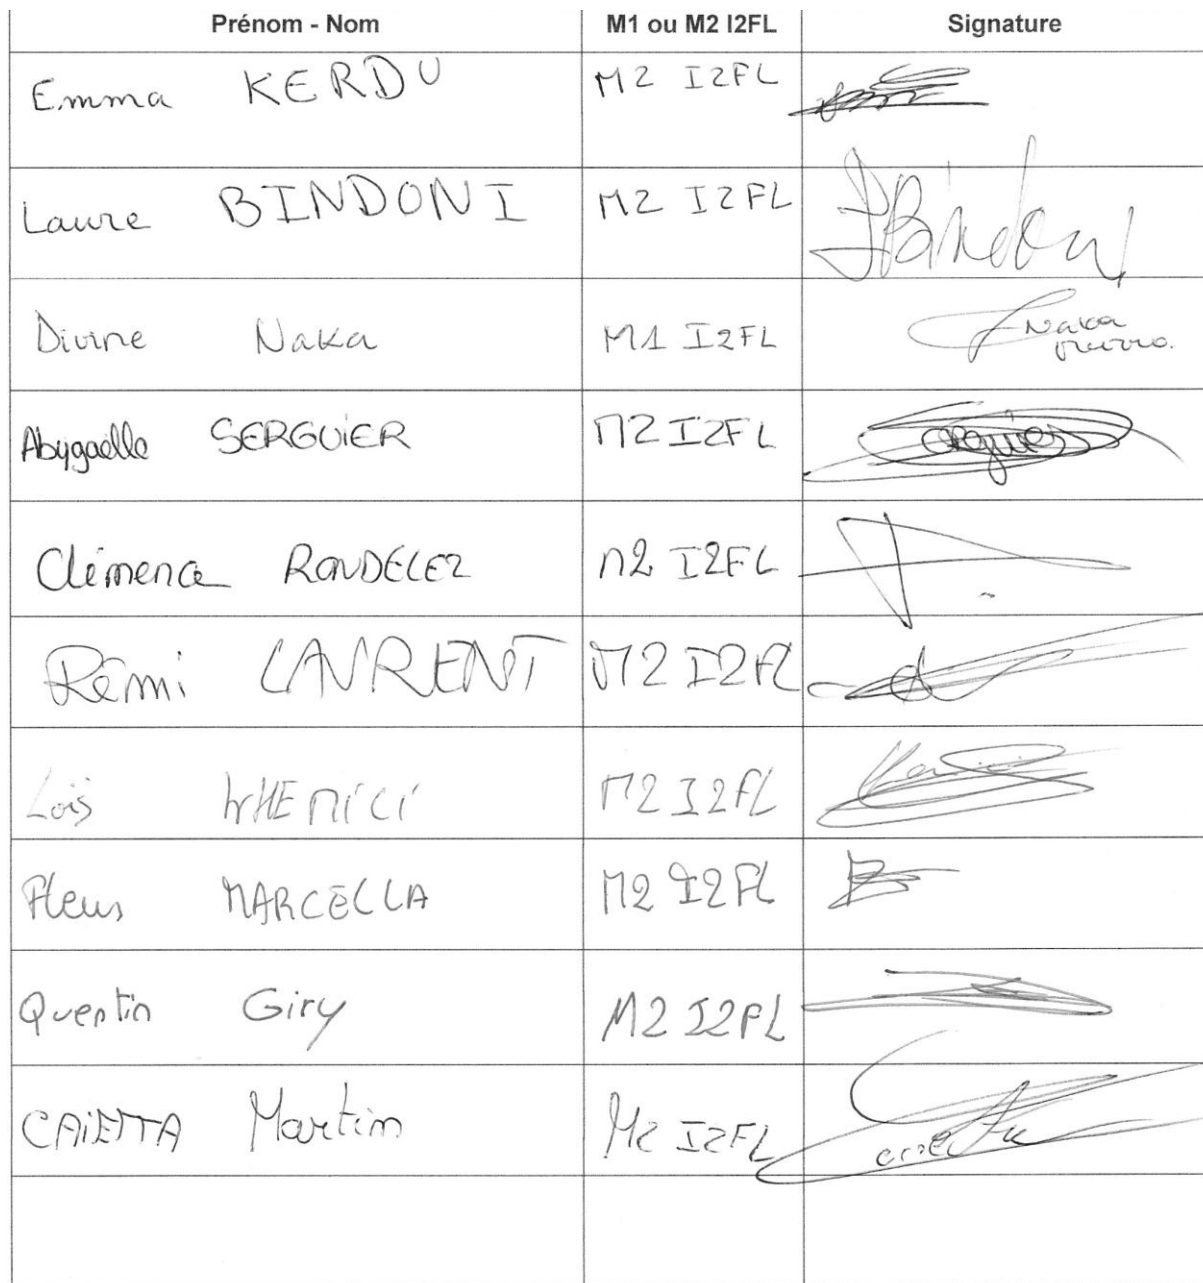 Prénom - Nom M1 ou M2 I2FL Signature
Emma KERDU M2 I2FL
Laure BINDONI M2 I2FL Bindoni
Divine Naka M1 I2FL Naka
Abygaëlle SERGUIER M2 I2FL
Clémence RONDELEZ M2 I2FL
Rémi LAURENT M2 I2FL
Loïs M2 I2FL
MARCELLA M2 I2FL
Quentin Giry M2 I2FL
CAIETTA Martin M2 I2FL